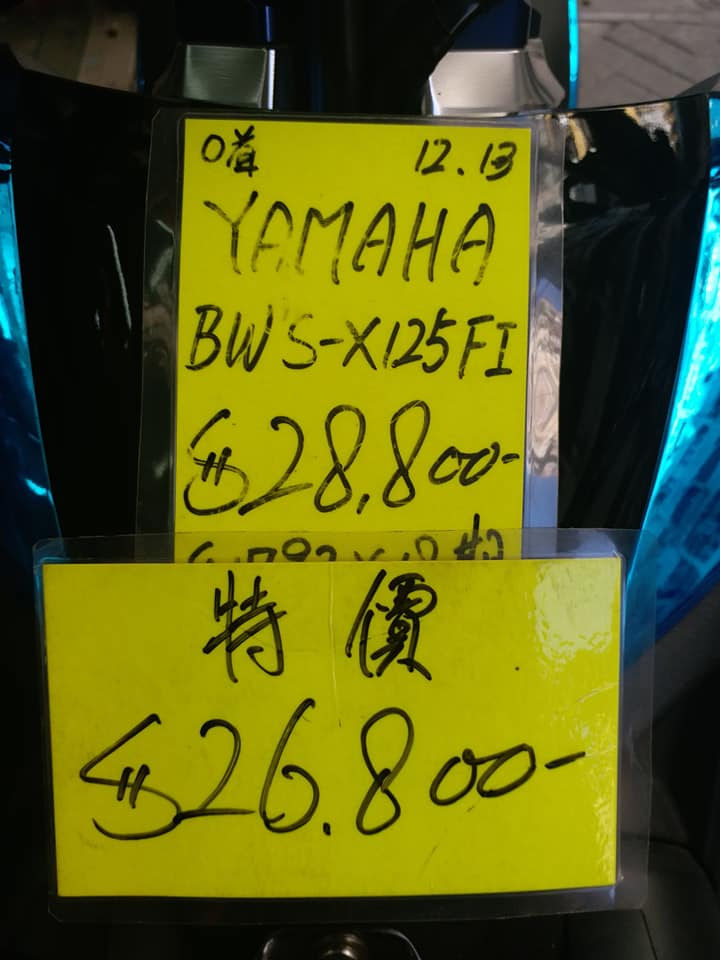 0首 12.13
YAMAHA
BW'S-X125FI
$28,800-
特價
$26.800-